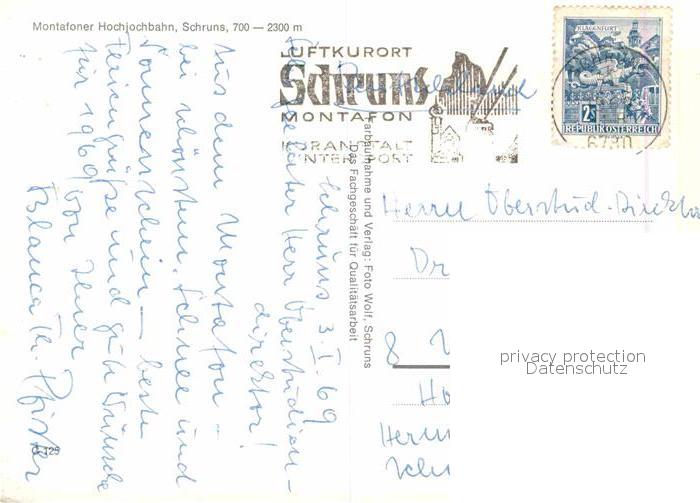 Montafoner Hochjochbahn, Schruns, 700 — 2300 m
LUFTKURORT
Schruns
MONTAFON
KURANSTALT
WINTERSPORT
KLAGENFURT
2S
REPUBLIK ÖSTERREICH
6780
Schruns 3. I. 69
Sehr geehrter Herr Oberstudien-
direktor!
Aus dem Montafon -
bei schönstem Schnee und
Sonnenschein — beste
Feriengrüße und gute Wünsche
für 1969
von Ihrer
Blanca
Pfister
C 125
Farbaufnahme und Verlag: Foto Wolf, Schruns
Das Fachgeschäft für Qualitätsarbeit
Herrn Oberstud.-Direktor
Dr
8
privacy protection
Datenschutz